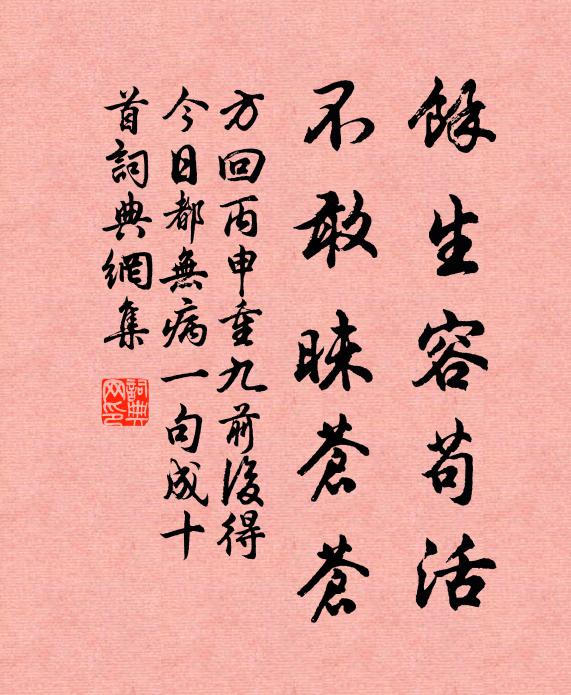 餘生容苟活
不敢昧蒼蒼
方回丙申重九前後得
今日都無病一句成十
首詞典網集
詞典
网印